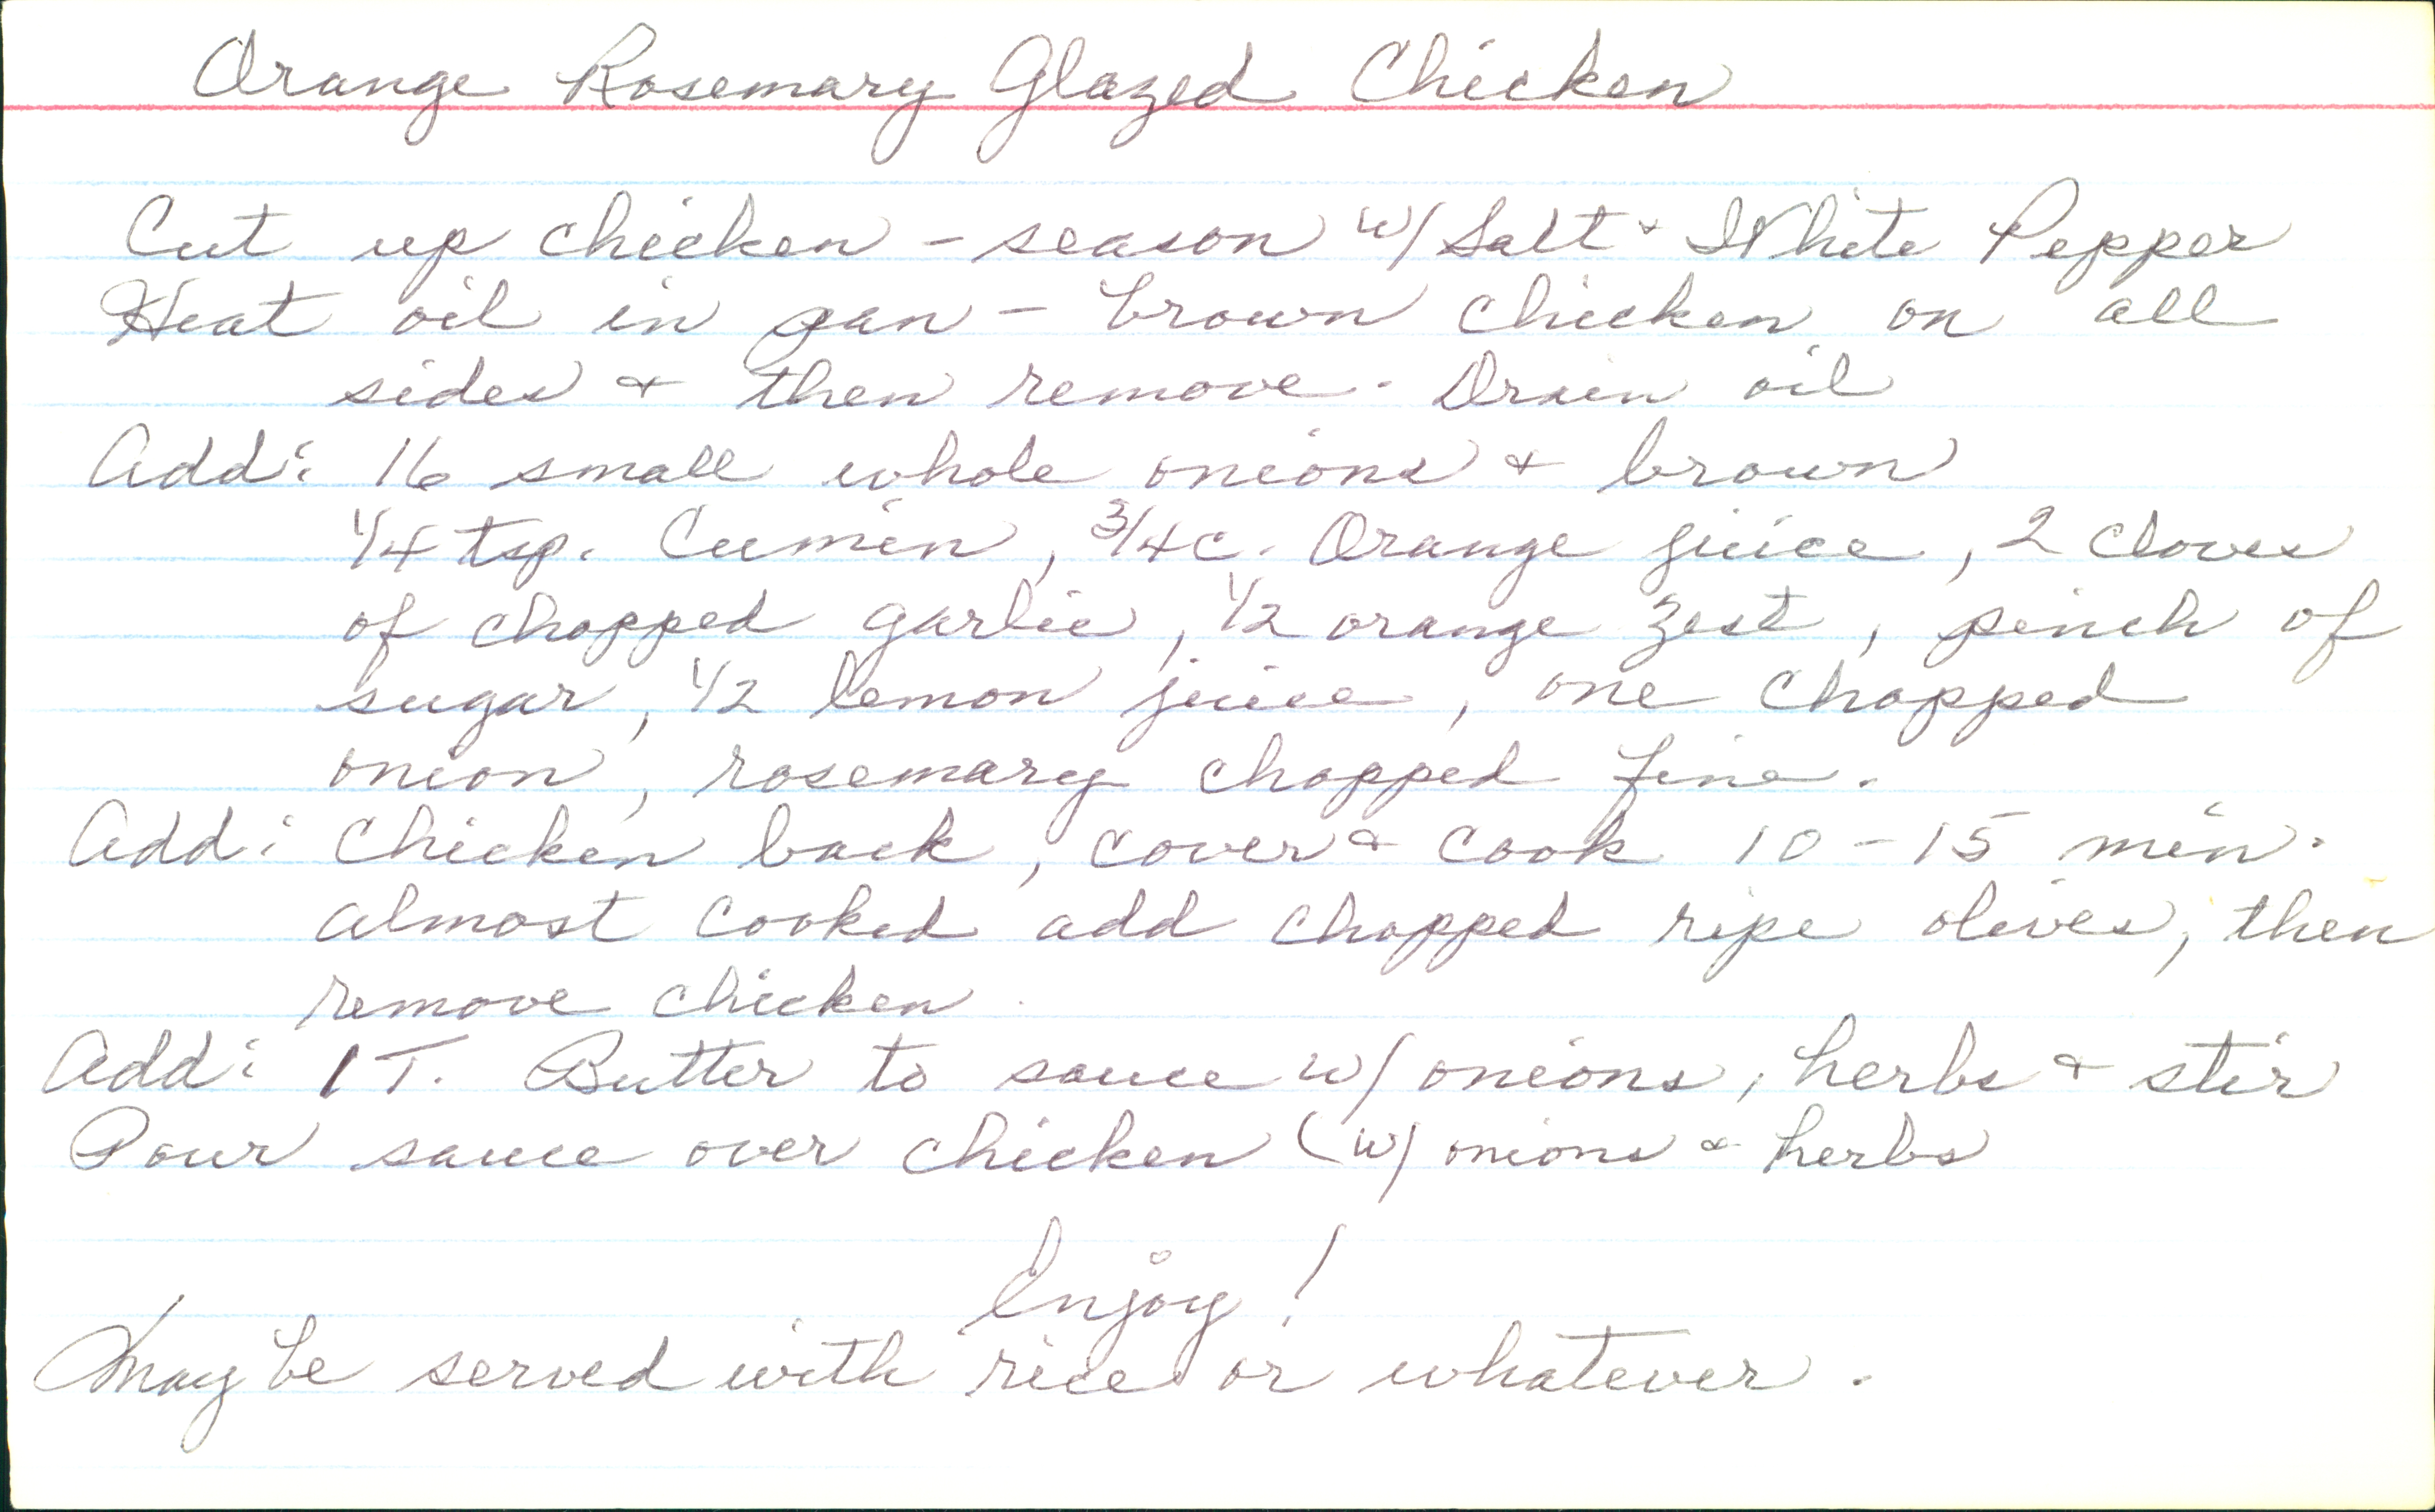 Orange Rosemary Glazed Chicken
Cut up chicken - season w/ Salt & White Pepper
Heat oil in pan - brown chicken on all
sides & then remove. Drain oil
Add: 16 small whole onions & brown
1/4 tsp. Cumin, 3/4 c. Orange juice, 2 cloves
of chopped garlic, 1/2 orange zest, pinch of
sugar, 1/2 lemon juice, one chopped
onion, rosemary chopped fine.
Add: Chicken back, cover & cook 10-15 min.
almost cooked add chopped ripe olives, then
remove chicken
Add: 1 T. Butter to sauce w/ onions, herbs & stir
Pour sauce over chicken (w/ onions & herbs
Enjoy!
May be served with rice or whatever.